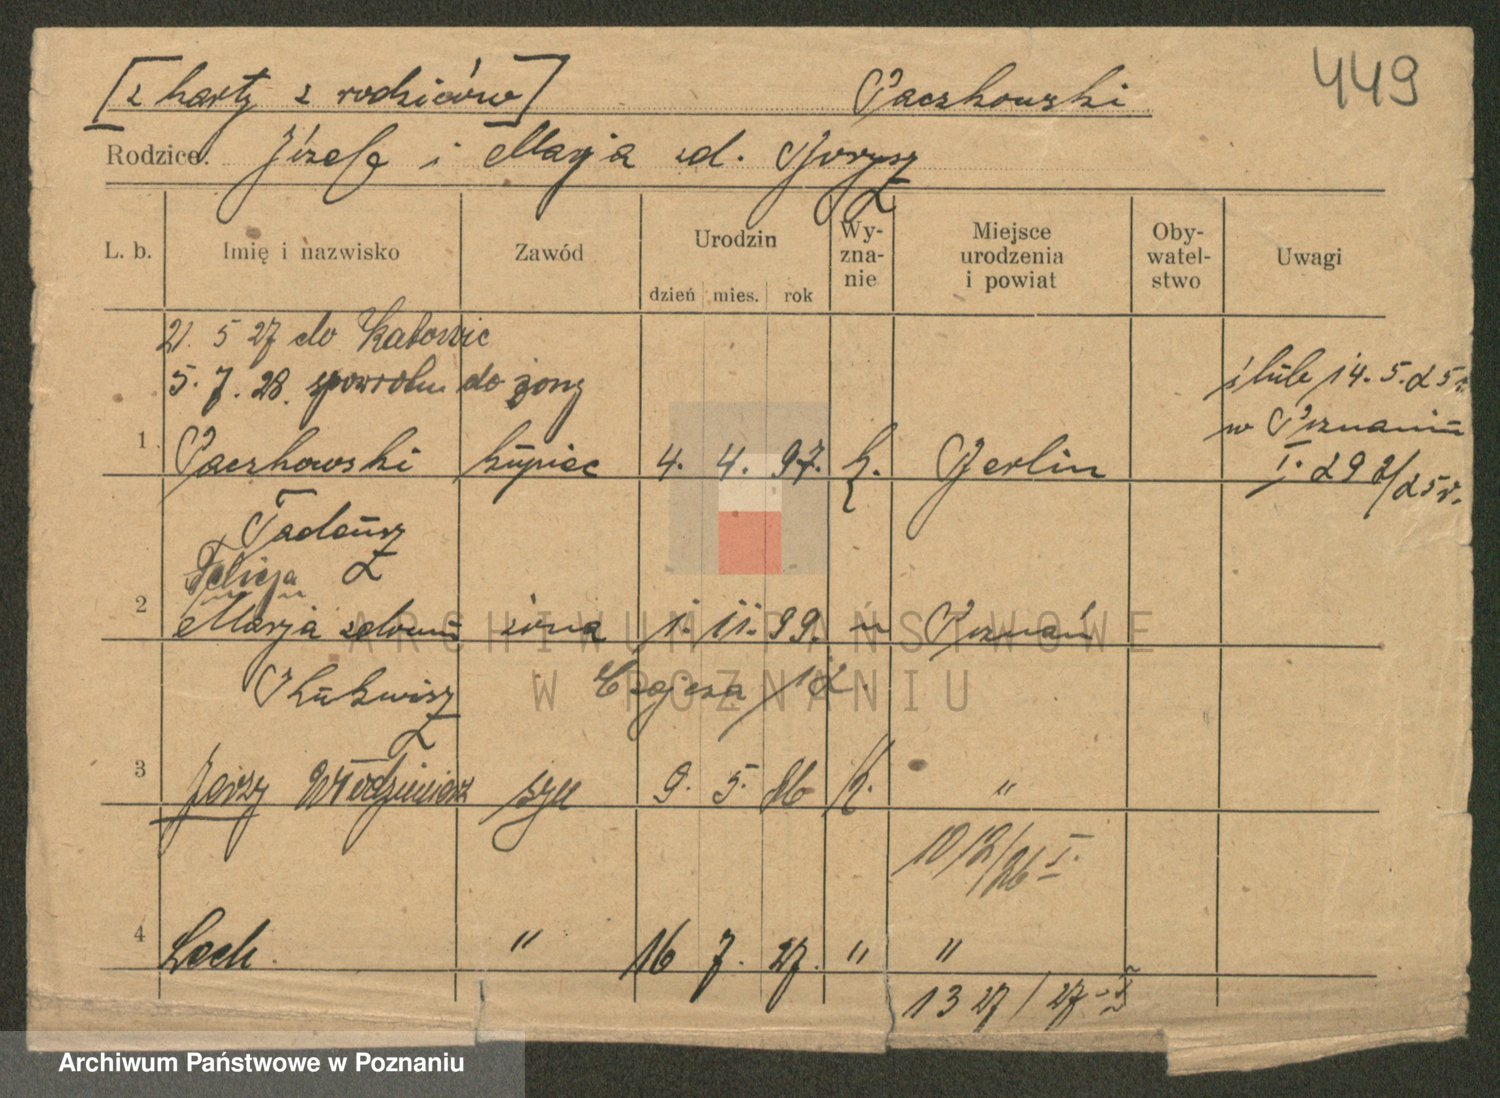 449
[z karty z rodziców] Paczkowski
Rodzice: Józefa i Marja zd.
L. b. Imię i nazwisko Zawód Urodzin Wy-zna-nie Miejsce urodzenia i powiat Oby-watel-stwo Uwagi
dzień mies. rok
21. 5 27 do Katowic
5. 7. 28. spowrotem do żony
ślub 14. 5. 25 r.
w Poznaniu
1 Paczkowski kupiec 4. 4. 97. k. Berlin I. 292/25 r.
Tadeusz
Felicja
2 Marja z domu żona 1. 11. 99. " Poznań
ARCHIWUM PAŃSTWOWE
W POZNANIU
3 Jerzy Włodzimierz syn 9. 5. 26 k. "
1012/26 I.
4 Lech " 16 7. 27. " "
1327/27 I
Archiwum Państwowe w Poznaniu